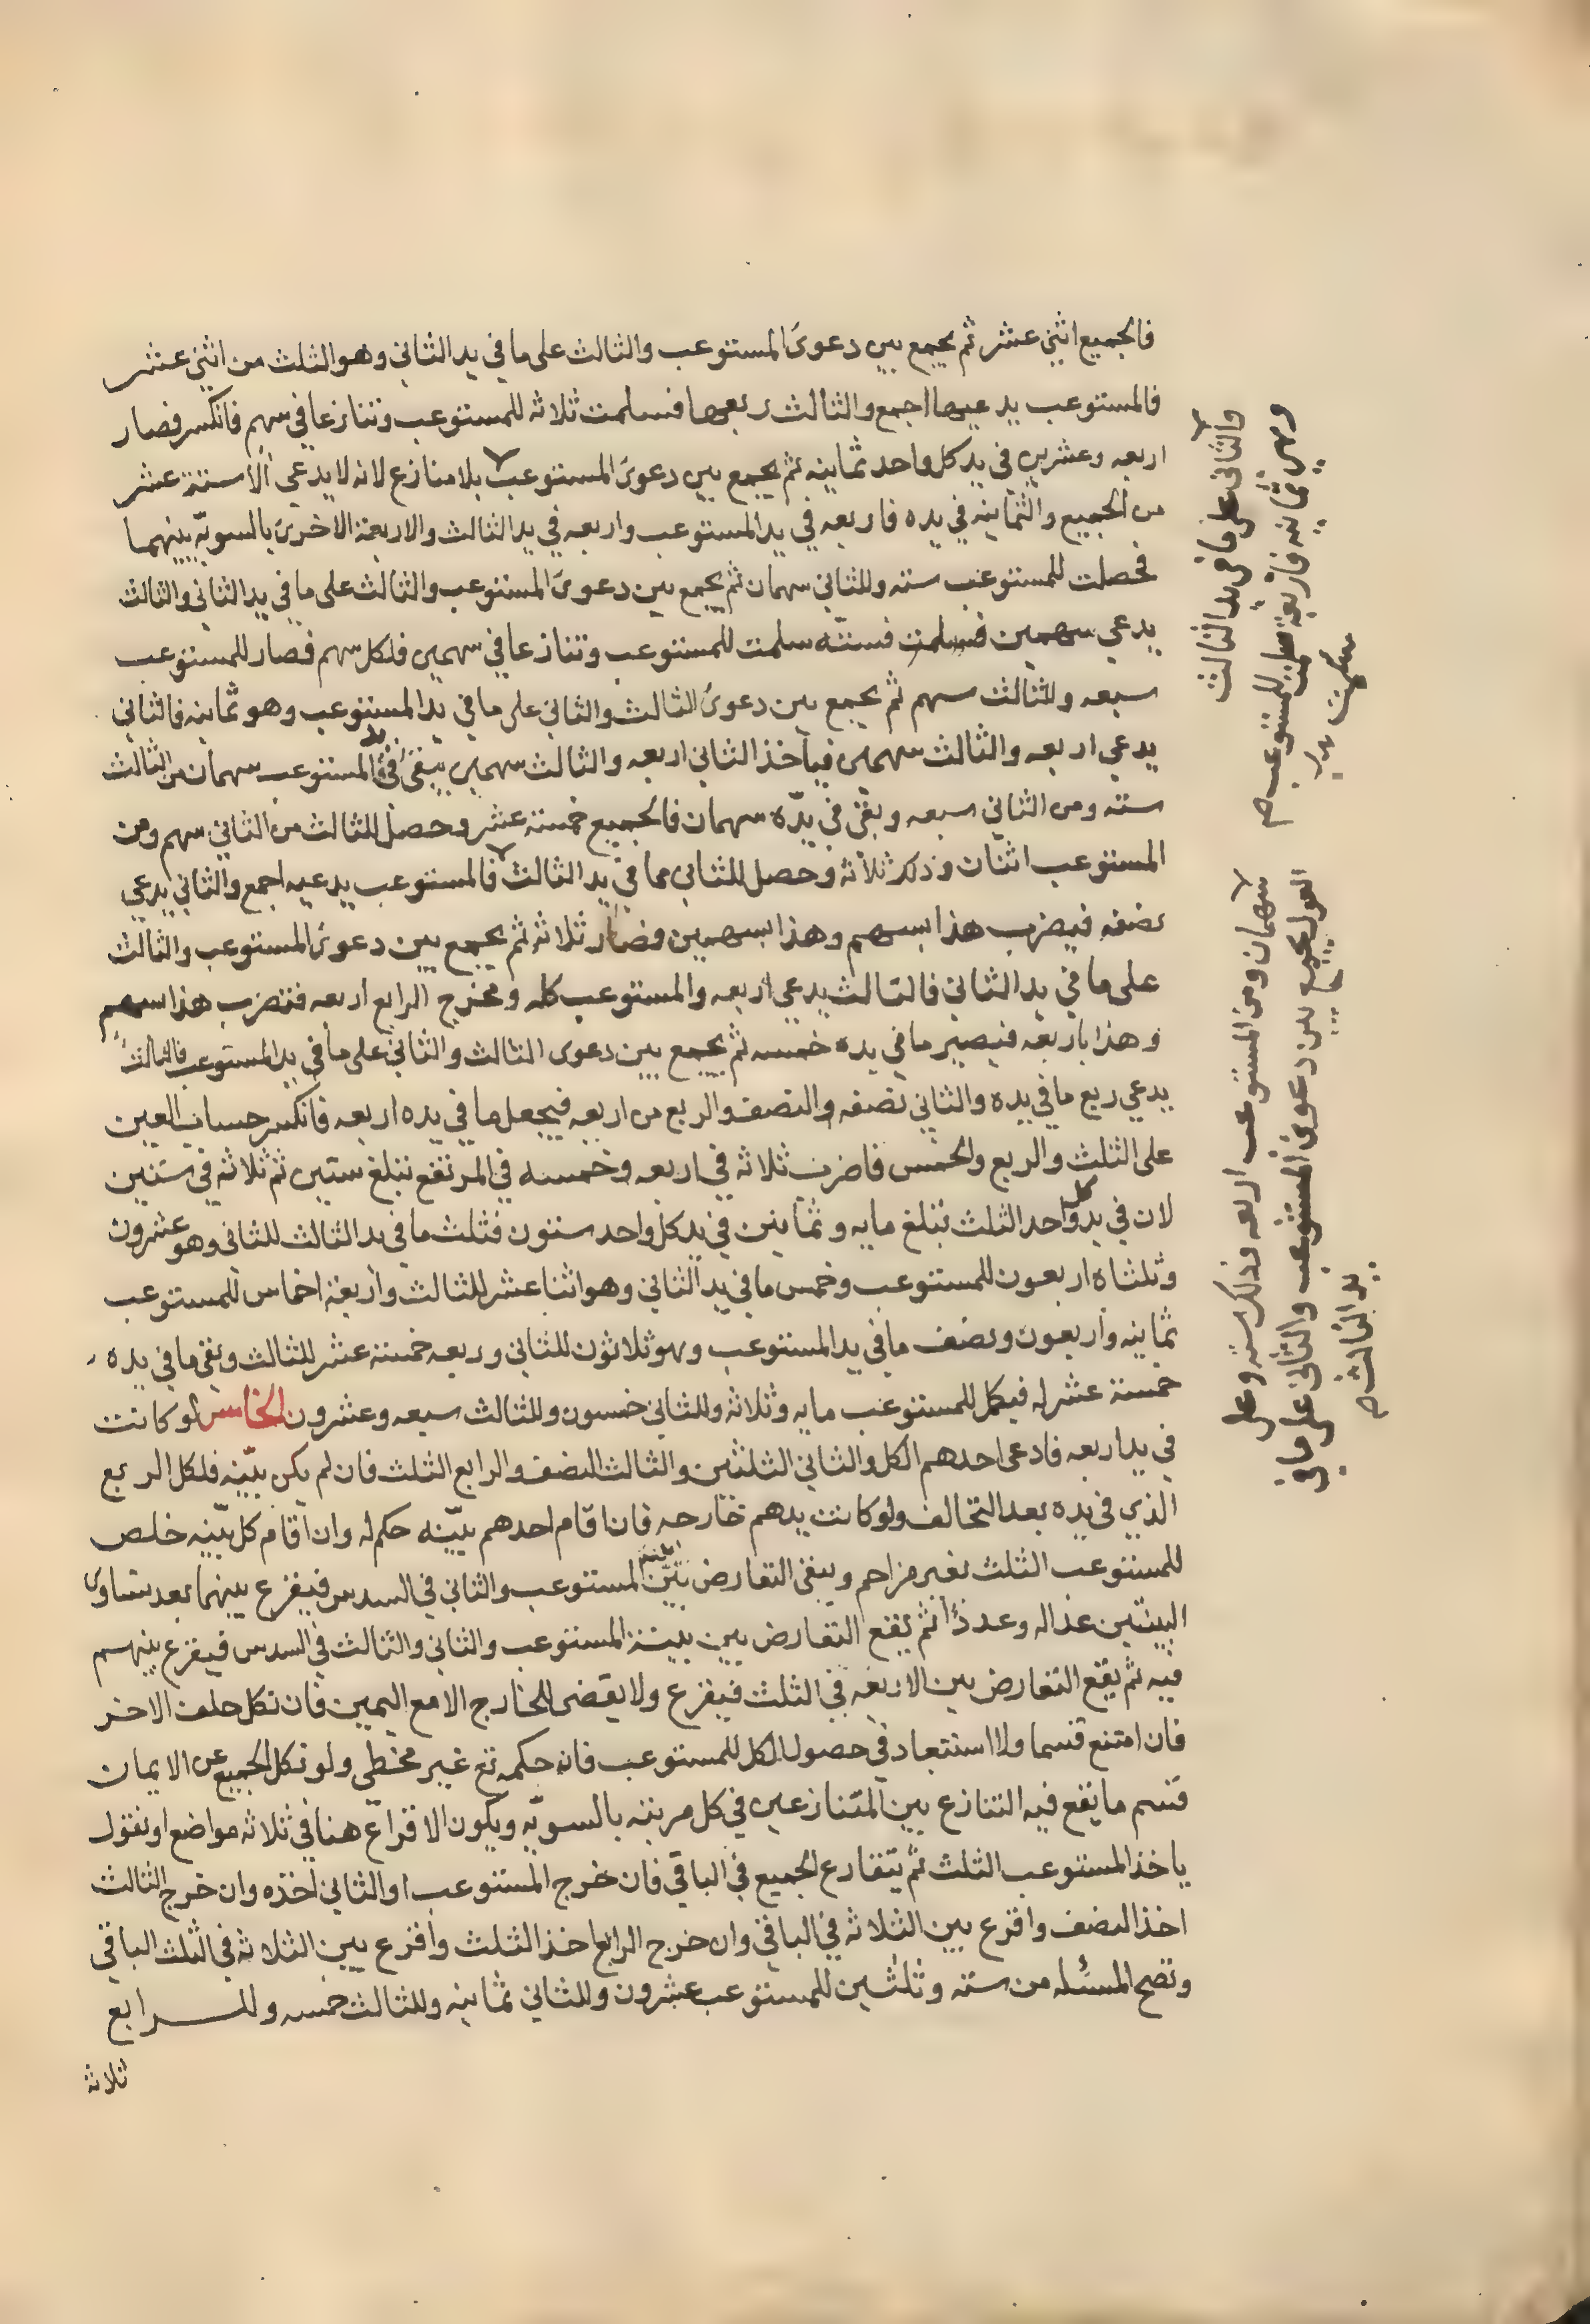 فالجميع اثنى عشر ثم يجمع بين دعوى المستوعب والثالث على ما في يد الثاني وهو الثلث من اثنى عشر
فالمستوعب يدعيها اجمع والثالث ربعها فسلمت ثلاثه للمستوعب وتنازعا في سهم فانكسر فصار
اربعه وعشرين في يد كل واحد ثمانيه ثم يجمع بين دعوى المستوعب بلا منازع لانه لا يدعي الا ستة عشر
من الجميع والثمانيه في يده فاربعه في يد المستوعب واربعه في يد الثالث والاربعة الاخرى بالسويّه بينهما
فحصلت للمستوعب سته وللثاني سهمان ثم يجمع بين دعوى المستوعب والثالث على ما في يد الثاني والثالث
يدعي سهمين فسلمت فستّه سلمت للمستوعب وتنازعا في سهمين فلكل سهم فصار للمستوعب
سبعه وللثالث سهم ثم يجمع بين دعوى الثالث والثاني على ما في يد المستوعب وهو ثمانيه فالثاني
يدعي اربعه والثالث سهمين فيأخذ الثاني اربعه والثالث سهمين يبقى في يد المستوعب سهمان من الثالث
سته ومن الثاني سبعه وبقى في يدّه سهمان فالجميع خمسة عشر وحصل للثالث من الثاني سهم ومن
المستوعب اثنان وذلك ثلاثه وحصل للثاني مما في يد الثالث فالمستوعب يدعيه اجمع والثاني يدعي
نصفه فيضرب هذا بسهم وهذا بسهمين فصار ثلاثه ثم يجمع بين دعوى المستوعب والثالث
على ما في يد الثاني فالثالث يدعي اربعه والمستوعب كله ومخرج الرابع اربعه فتضرب هذا بسهم
وهذا باربعه فيصير ما في يده خمسه ثم يجمع بين دعوى الثالث والثاني على ما في يد المستوعب فالثالث
يدعي ربع ما في يده والثاني نصفه والنصف والربع من اربعه فيجعل ما في يده اربعه فانكسر حساب العين
على الثلث والربع والخمس فاضرب ثلاثه في اربعه وخمسه في المرتفع تبلغ ستين ثم ثلاثه في ستين
لان في يد كل واحد الثلث تبلغ مايه وثمانين في يد كل واحد ستون فثلث ما في يد الثالث للثاني وهو عشرون
وثلثاه اربعون للمستوعب وخمس ما في يد الثاني وهو اثنا عشر للثالث واربعة اخماس للمستوعب
ثمانيه واربعون ونصف ما في يد المستوعب وهو ثلاثون للثاني وربعه خمسة عشر للثالث وبقى ما في يده
خمسة عشر له فيكمل للمستوعب مايه وثلاثه وللثاني خمسون وللثالث سبعه وعشرون الخامس لو كانت
في يد اربعه فادعى احدهم الكل والثاني الثلثين والثالث النصف والرابع الثلث فان لم يكن بيّنه فلكل الربع
الذي في يده بعد التحالف ولو كانت يدهم خارجه فان اقام احدهم بيّنه حكم له وان اقام كل بيّنه خلص
للمستوعب الثلث بغير مزاحم ويبقى التعارض بين المستوعب والثاني في السدس فيقرع بينهما بعد تساوى
البينتين عداله وعددًا ثم يقع التعارض بين بينة المستوعب والثاني والثالث في السدس فيقرع بينهم
فيه ثم يقع التعارض بين الاربعه في الثلث فيقرع ولا يقضى للخارج الا مع اليمين فان نكل حلف الاخر
فان امتنع قسما ولا استبعاد في حصول الكل للمستوعب فان حكمه تع غير مخطي ولو نكل الجميع عن الايمان
قسم ما يقع فيه التنازع بين المتنازعين في كل مرتبه بالسويّه ويكون الاقراع هنا في ثلاثه مواضع او نقول
ياخذ المستوعب الثلث ثم يتقارع الجميع في الباقي فان خرج المستوعب او الثاني اخذه وان خرج الثالث
اخذ النصف واقرع بين الثلاثه في الباقي وان خرج الرابع اخذ الثلث واقرع بين الثلاثه في الثلث الباقي
وتصح المسئله من سته وثلثين للمستوعب عشرون وللثاني ثمانيه وللثالث خمسه وللرابع
ثلاثه
والثاني على ما في يد الثالث
وهى ثمانيه فاربعة للمستوعب صح
سلمت
سهمان ومن المستوعب اربعه فذلك سته وعلى
العول يجمع بين دعوى المستوعب والثاني على ما في
يد الثالث صح